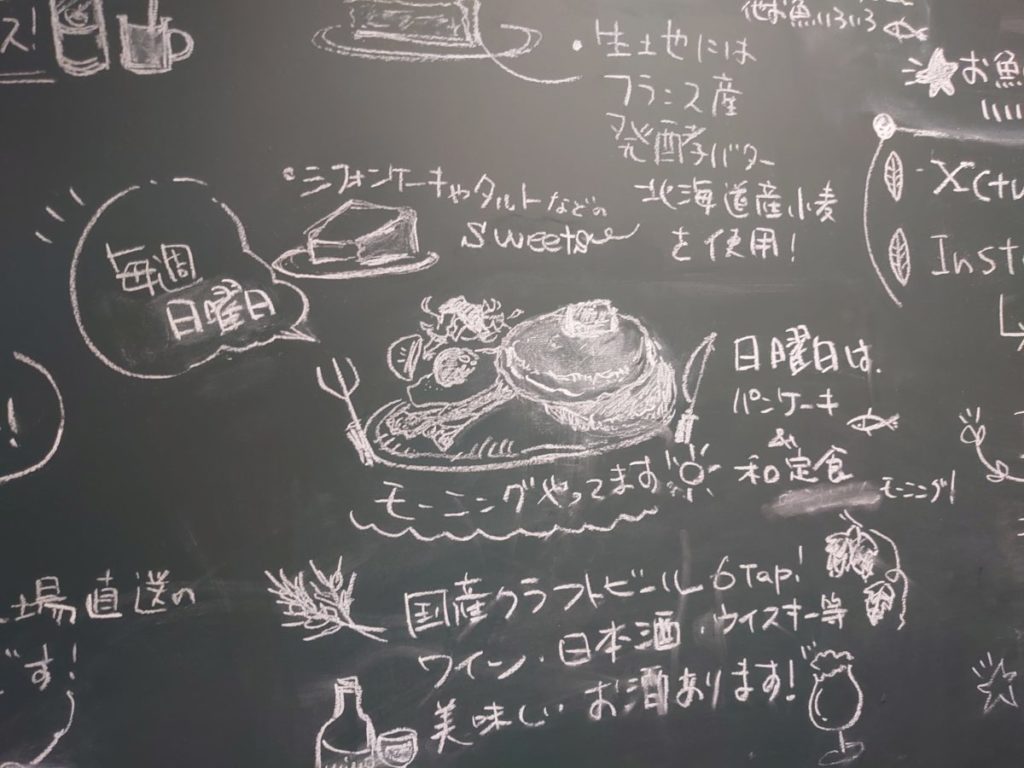 ス!
他お魚いろいろ
・生土地には
フランス産
発酵バター
北海道産小麦
を使用!
お魚
・シフォンケーキやタルトなどの
Sweets
毎週
日曜日
Insta
日曜日は、
パンケーキ
&
和定食
モーニング!
モーニングやってます
場直送の
す!
国産クラフトビール 6Tap!
ワイン・日本酒・ウイスキー等
美味しいお酒あります!